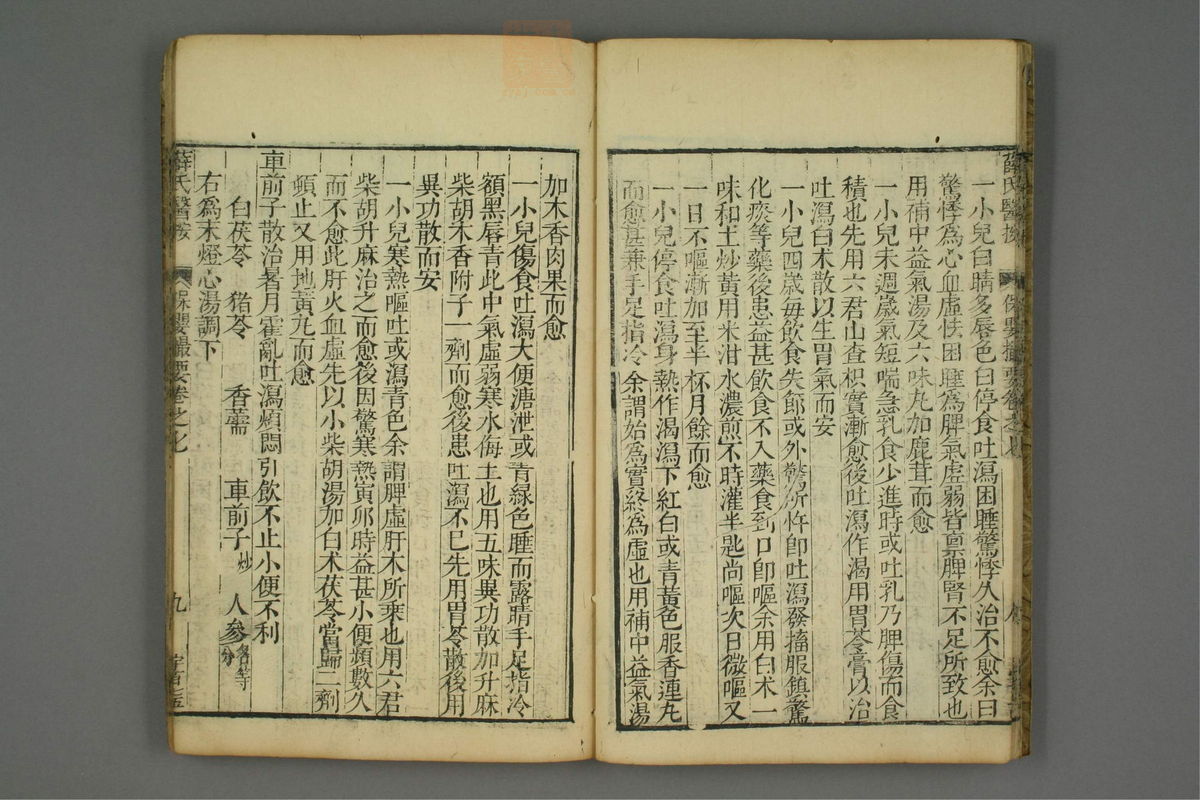 一小兒白睛多唇色白停食吐瀉困睡驚悸久治不愈余曰
驚悸爲心血虛怯困睡爲脾氣虛弱皆稟脾腎不足所致也
用補中益氣湯及六味丸加鹿茸而愈
一小兒未週歲氣短喘急乳食少進時或吐乳乃脾傷而食
積也先用六君山查枳實漸愈後吐瀉作渴用胃苓膏以治
吐瀉白术散以生胃氣而安
一小兒四歲每飲食失節或外驚所忤卽吐瀉發搐服鎮驚
化痰等藥後患益甚飲食不入藥食到口卽嘔余用白术一
味和土炒黃用米泔水濃煎不時灌半匙尚嘔次日微嘔又
一日不嘔漸加至半杯月餘而愈
一小兒停食吐瀉身熱作渴瀉下紅白或青黃色服香連丸
而愈甚兼手足指冷余謂始爲實終爲虛也用補中益氣湯
加木香肉果而愈
一小兒傷食吐瀉大便溏泄或青綠色睡而露睛手足指冷
額黑唇青此中氣虛弱寒水侮土也用五味異功散加升麻
柴胡木香附子一劑而愈後患吐瀉不已先用胃苓散後用
異功散而安
一小兒寒熱嘔吐或瀉青色余謂脾虛肝木所乘也用六君
柴胡升麻治之而愈後因驚寒熱寅卯時益甚小便頻數久
而不愈此肝火血虛先以小柴胡湯加白术茯苓當歸二劑
頓止又用地黃丸而愈
車前子散治暑月霍亂吐瀉煩悶引飲不止小便不利
白茯苓　猪苓　香薷　車前子炒　人參各等分
右爲末燈心湯調下
薛氏醫按　保嬰撮要卷之七　九